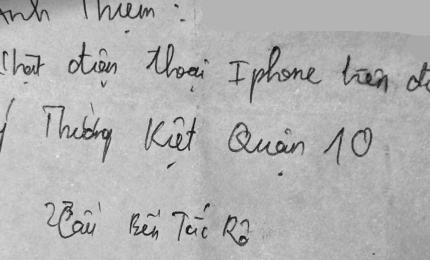 Anh Thiệm:
Nhặt điện thoại Iphone trên đ
ý Thường Kiệt Quận 10
Cầu Bến Tác Rỗ